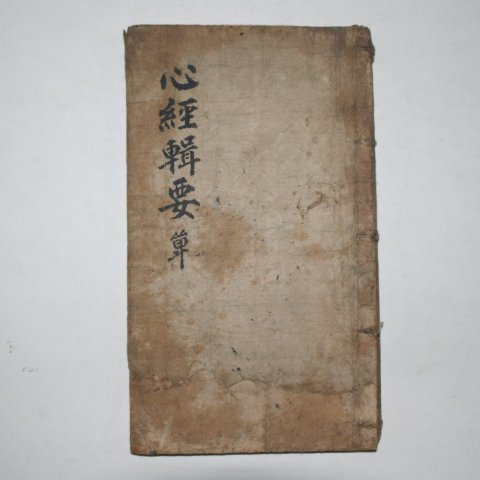 心經輯要 單